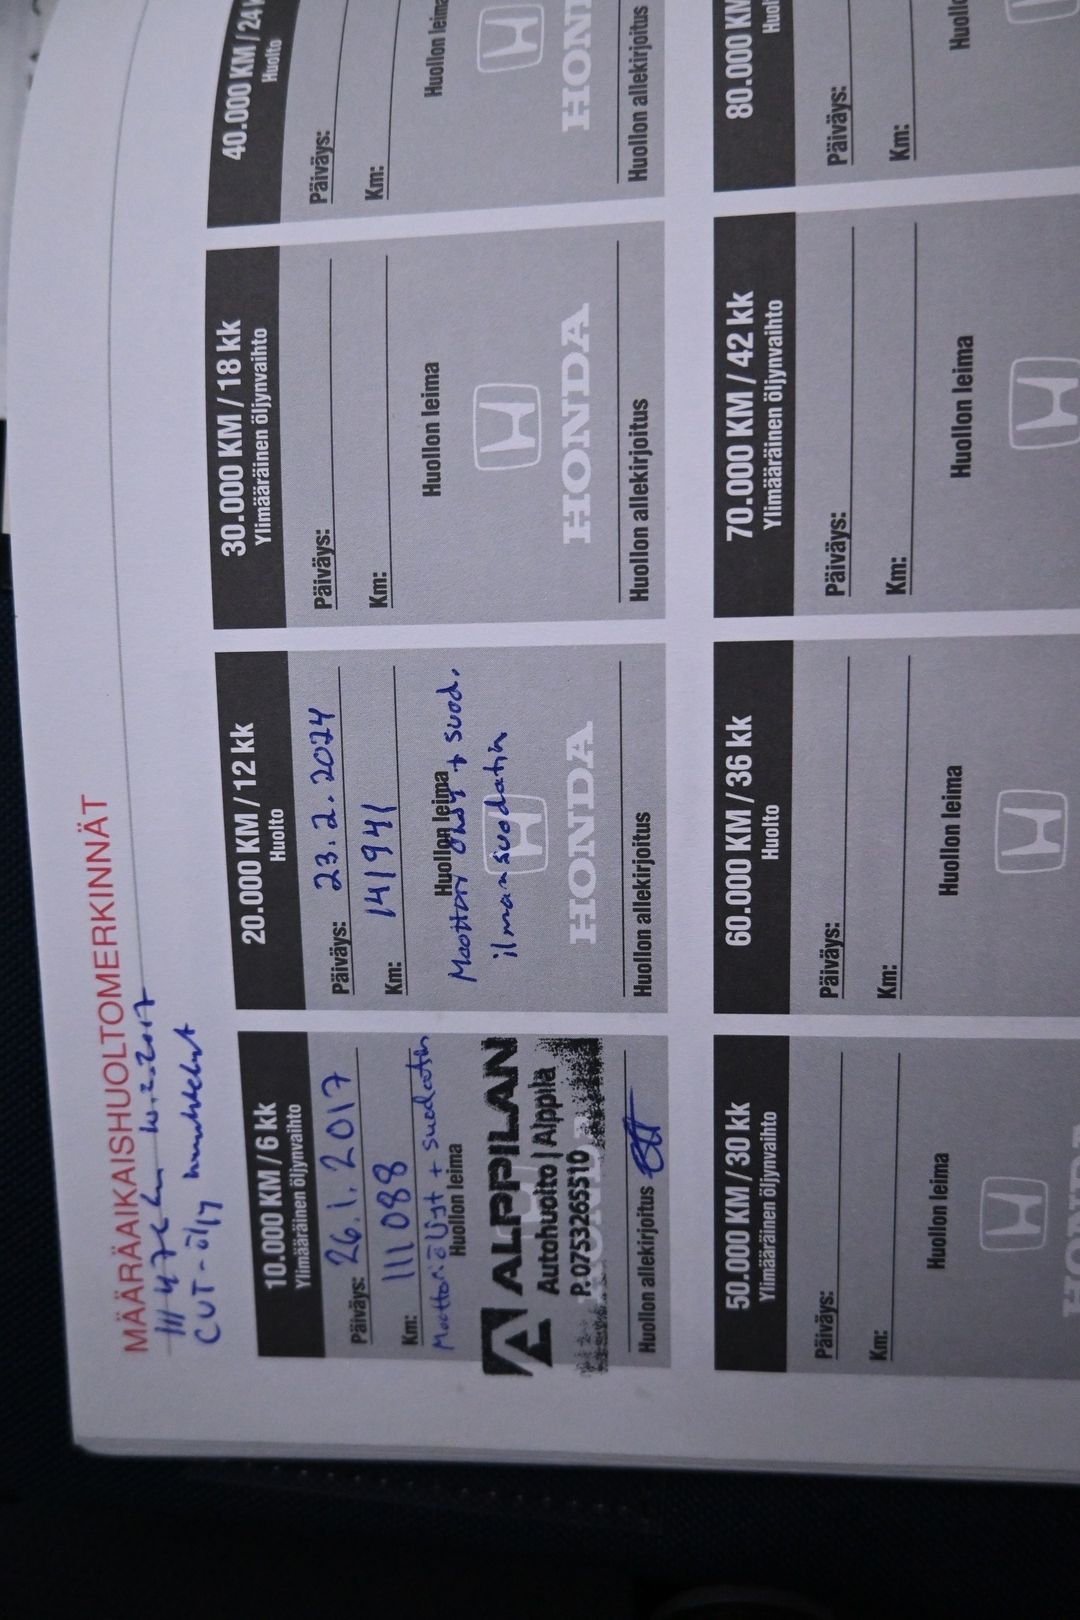 MÄÄRÄAIKAISHUOLTOMERKINNÄT
111 476 km 10.2.2017
CVT-öljy
10.000 KM / 6 kk
Ylimääräinen öljynvaihto
Päiväys: 26.1.2017
Km: 111 088
Moottoriöljyt + suodatin
Huollon leima
ALPPILAN
Autohuolto | Alppila
P.0753265510
HONDA
Huollon allekirjoitus
20.000 KM / 12 kk
Huolto
Päiväys: 23.2.2024
Km: 141941
Huollon leima
Moottori öljy + suod.
ilmansuodatin
HONDA
Huollon allekirjoitus
30.000 KM / 18 kk
Ylimääräinen öljynvaihto
Päiväys:
Km:
Huollon leima
HONDA
Huollon allekirjoitus
40.000 KM / 24
Huolto
Päiväys:
Km:
Huollon leima
HOND
Huollon allekirjoitus
50.000 KM / 30 kk
Ylimääräinen öljynvaihto
Päiväys:
Km:
Huollon leima
HONDA
60.000 KM / 36 kk
Huolto
Päiväys:
Km:
Huollon leima
70.000 KM / 42 kk
Ylimääräinen öljynvaihto
Päiväys:
Km:
Huollon leima
80.000 KM
Päiväys:
Km: